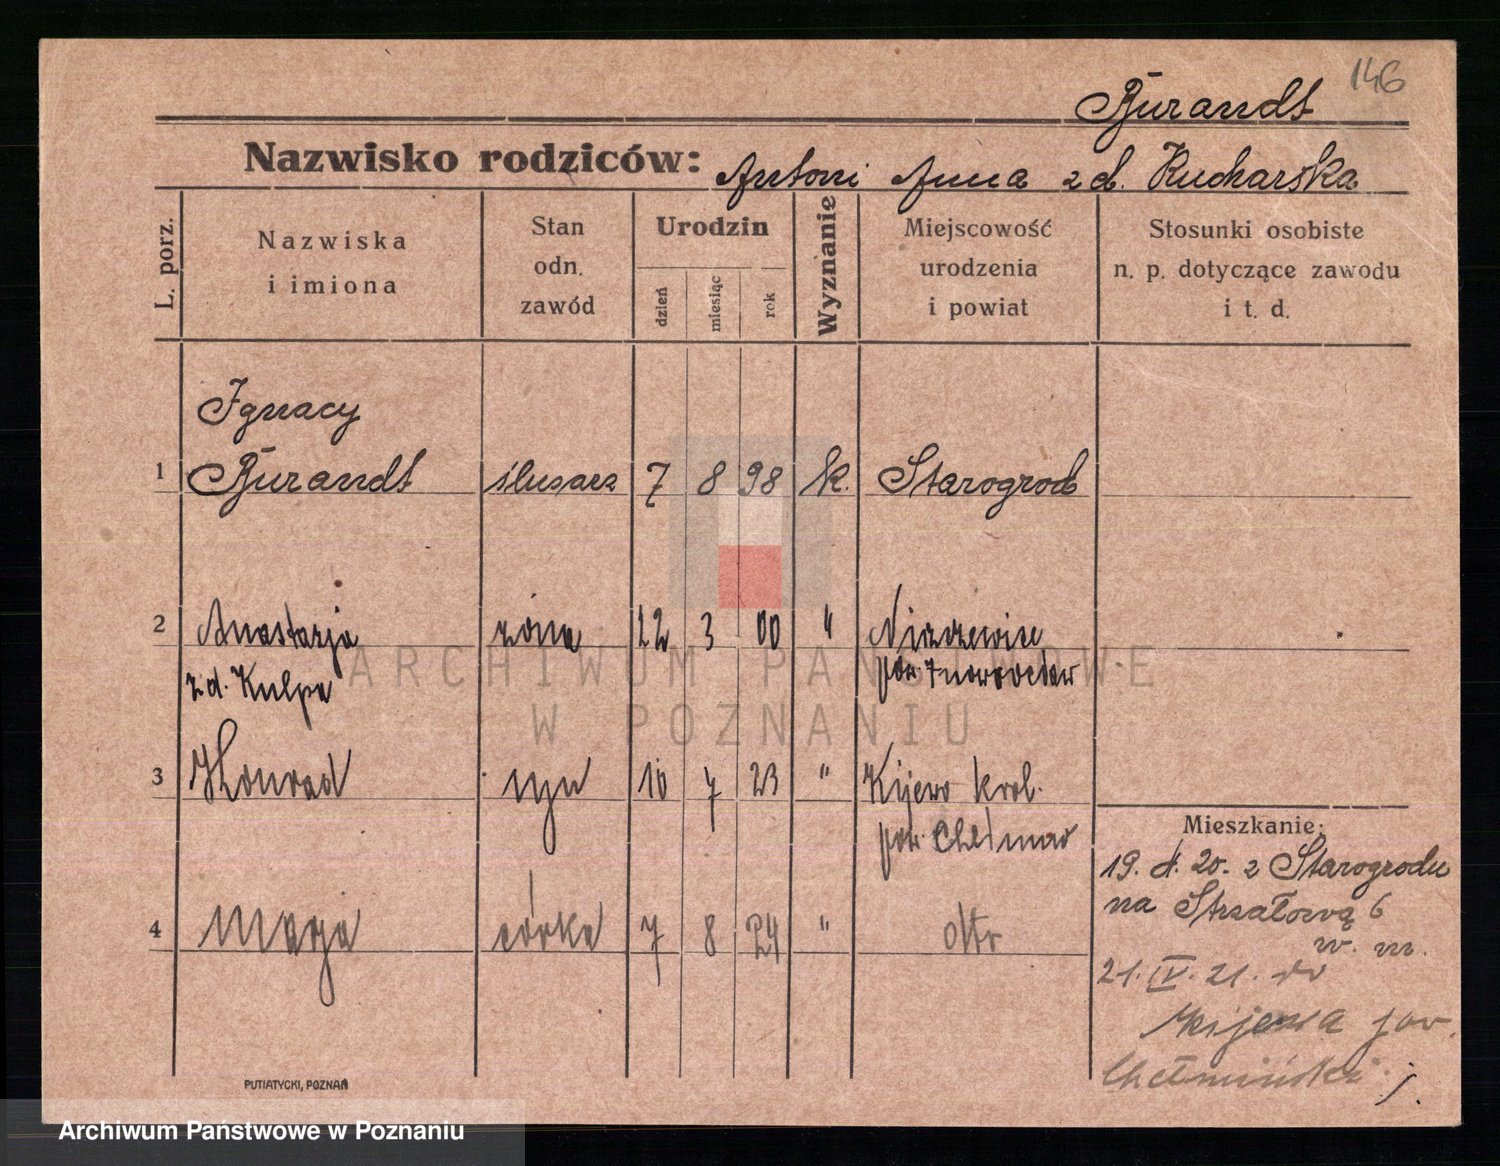 146
Burandt
Nazwisko rodziców: Antoni Anna z d. Kucharska
L. porz.
Nazwiska
i imiona
Stan
odn.
zawód
Urodzin
dzień
miesiąc
rok
Wyznanie
Miejscowość
urodzenia
i powiat
Stosunki osobiste
n. p. dotyczące zawodu
i t. d.
Ignacy
1 Burandt ślusarz 7 8 98 k. Starogrod
2 Anastazja żona 22 3 00 "
z d. Kulpa pow. Inowrocław
3 Konrad syn 10 7 23 " Kijewo krol.
pow. Chełmno
4 Maria córka 7 8 24 "
Mieszkanie:
19. 20. z Starogrodu
na Strzałową 6
w. m.
21. IV. 21. do
Kijewa pow.
Chełmiński
PUTIATYCKI, POZNAŃ
ARCHIWUM PAŃSTWOWE
W POZNANIU
Archiwum Państwowe w Poznaniu